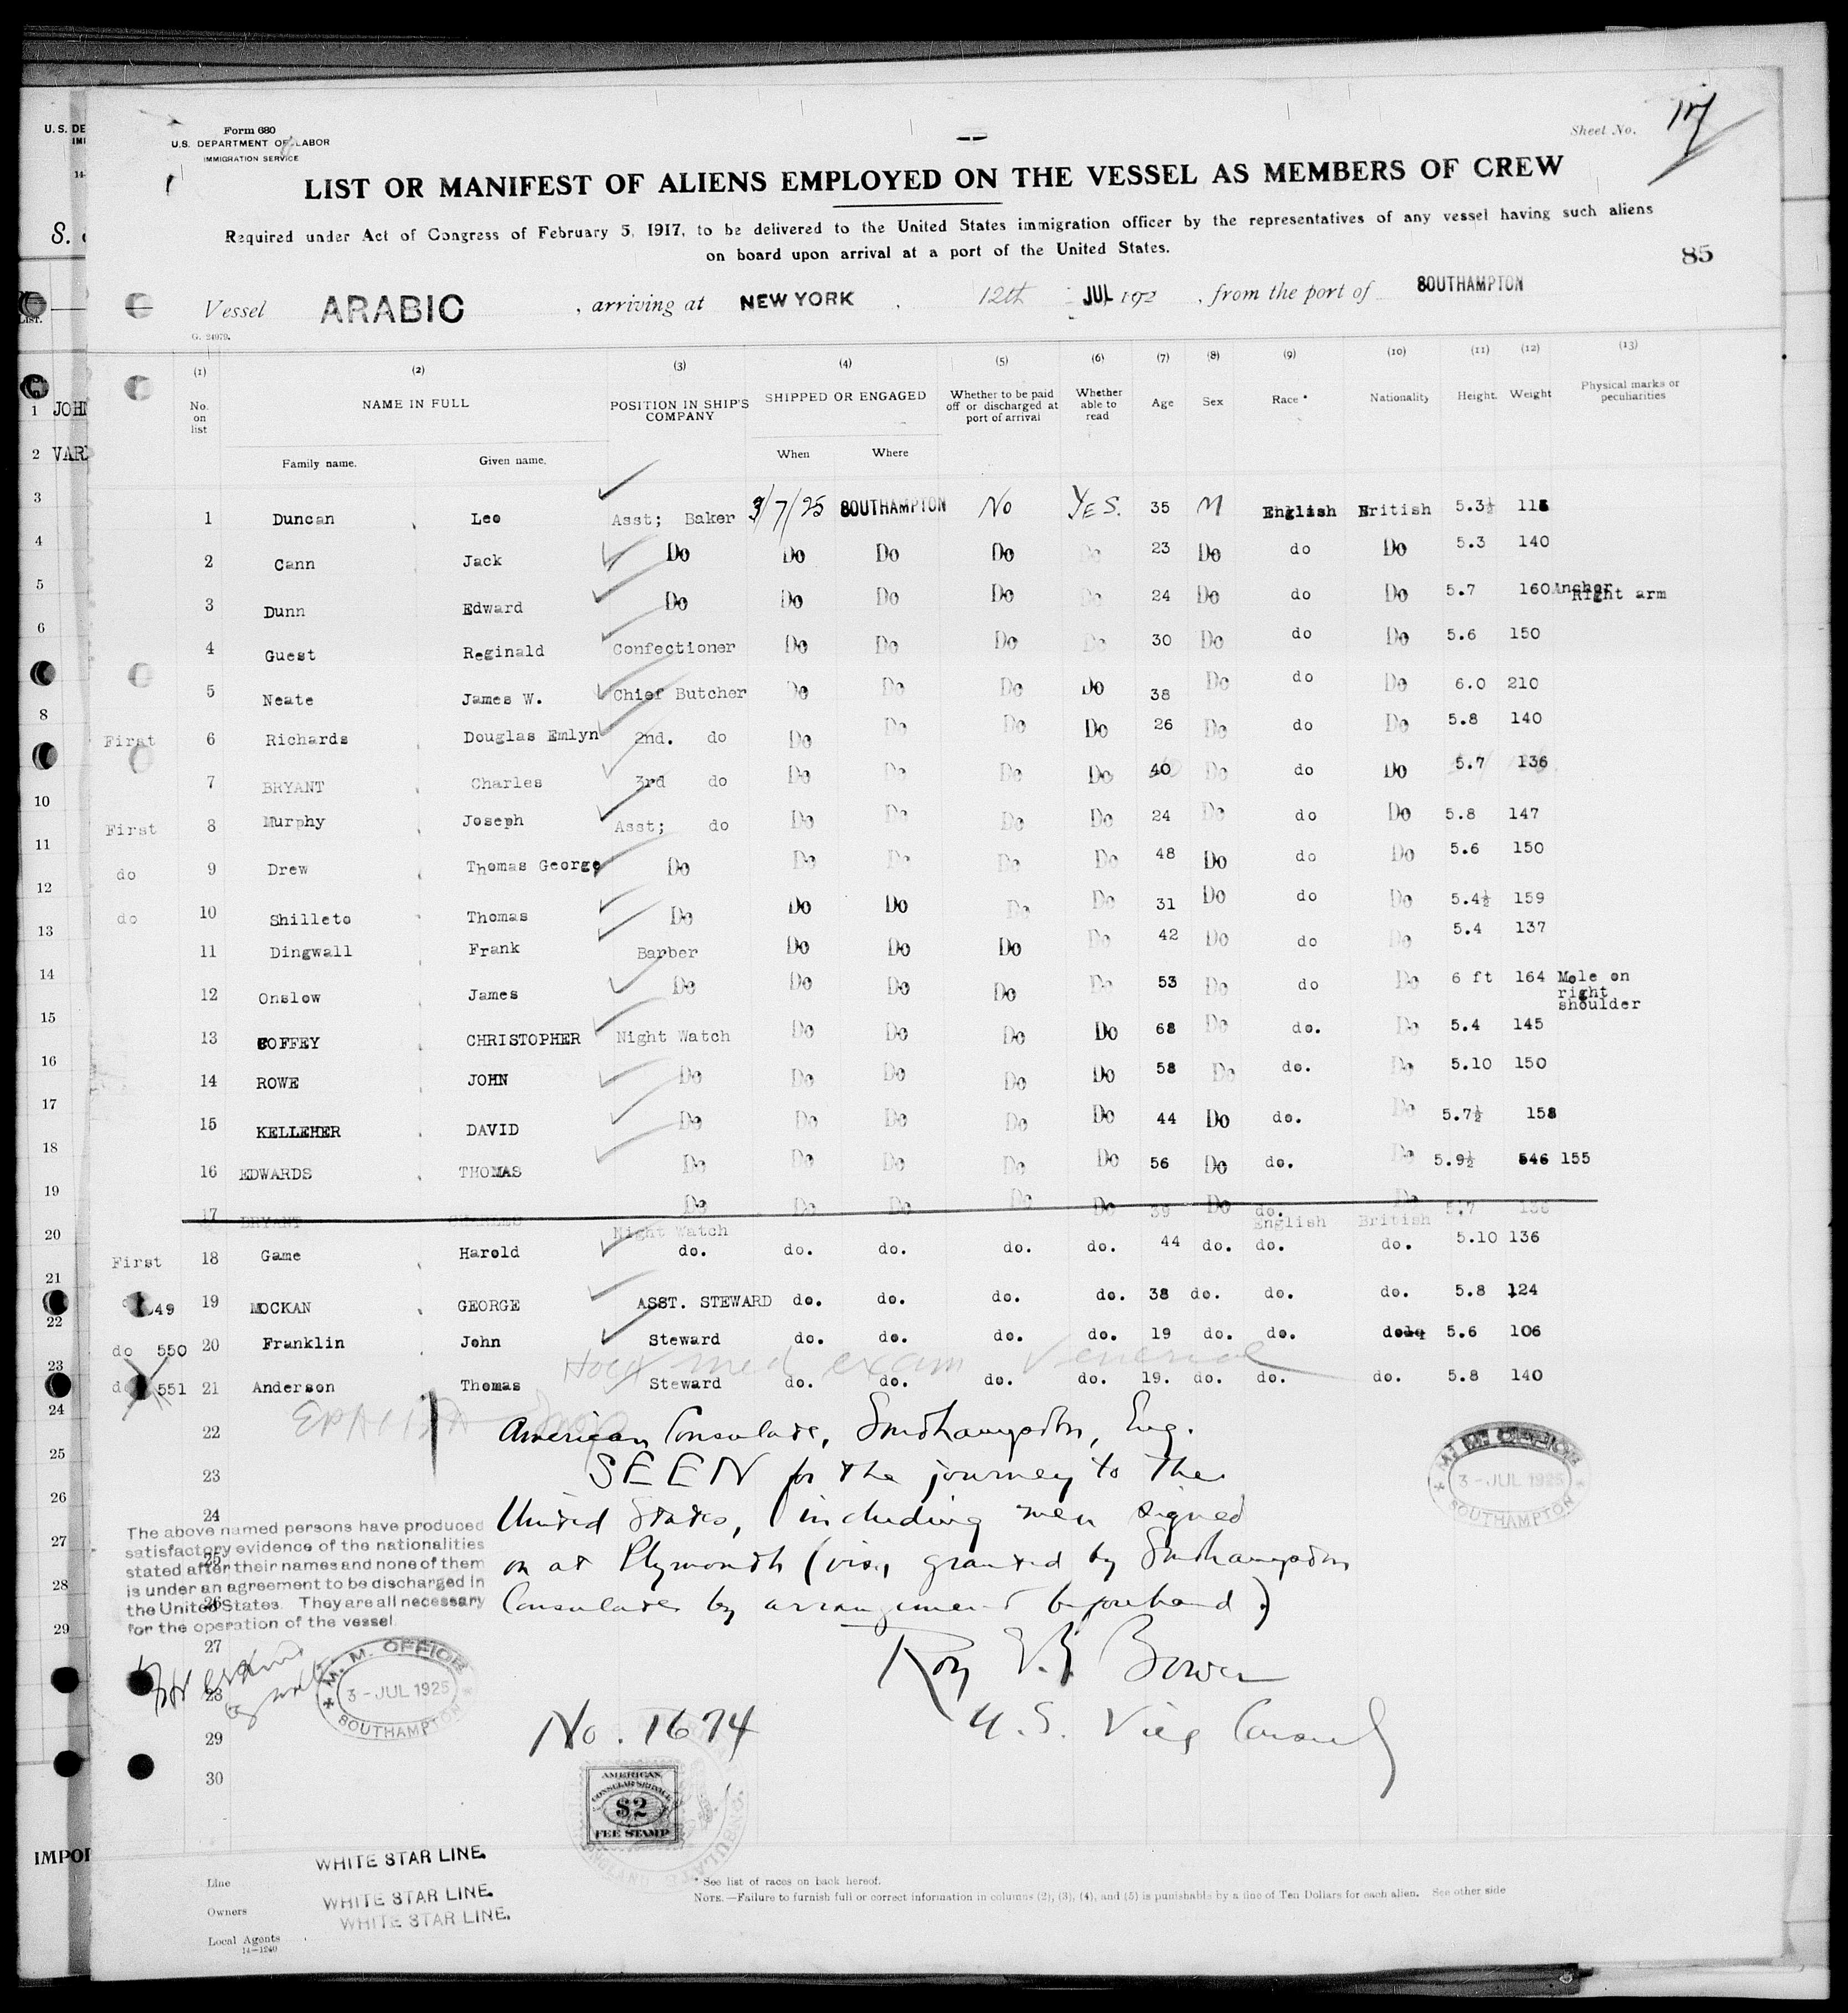 Form 680
U.S. DEPARTMENT OF LABOR
IMMIGRATION SERVICE
Sheet No. 17
LIST OR MANIFEST OF ALIENS EMPLOYED ON THE VESSEL AS MEMBERS OF CREW
Required under Act of Congress of February 5, 1917, to be delivered to the United States immigration officer by the representatives of any vessel having such aliens
on board upon arrival at a port of the United States.
85
Vessel ARABIC , arriving at NEW YORK , 12th JUL 192 , from the port of SOUTHAMPTON
G. 24979.
(1) (2) (3) (4) (5) (6) (7) (8) (9) (10) (11) (12) (13)
No. on list NAME IN FULL POSITION IN SHIP'S COMPANY SHIPPED OR ENGAGED Whether to be paid off or discharged at port of arrival Whether able to read Age Sex Race * Nationality Height. Weight Physical marks or peculiarities
Family name. Given name. When Where
1 Duncan , Leo Asst; Baker 3/7/25 SOUTHAMPTON No YES. 35 M English British 5.3½ 115
2 Cann , Jack Do Do Do Do Do 23 Do do Do 5.3 140
3 Dunn , Edward Do Do Do Do Do 24 Do do Do 5.7 160 Anchor Right arm
4 Guest , Reginald Confectioner Do Do Do Do 30 Do do Do 5.6 150
5 Neate James W. Chief Butcher Do Do Do Do 38 Do do Do 6.0 210
First 6 Richards , Douglas Emlyn 2nd. do Do Do Do Do 26 Do do Do 5.8 140
7 BRYANT , Charles 3rd do Do Do Do Do 40 Do do Do 5.7 136
First 8 Murphy , Joseph Asst; do Do Do Do Do 24 Do do Do 5.8 147
do 9 Drew , Thomas George Do Do Do Do Do 48 Do do Do 5.6 150
do 10 Shilleto , Thomas Do Do Do Do Do 31 Do do Do 5.4½ 159
11 Dingwall , Frank Barber Do Do Do Do 42 Do do Do 5.4 137
12 Onslow , James Do Do Do Do Do 53 Do do Do 6 ft 164 Mole on right shoulder
13 COFFEY , CHRISTOPHER Night Watch Do Do Do Do 68 Do do. Do 5.4 145
14 ROWE , JOHN Do Do Do Do Do 58 Do do. Do 5.10 150
15 KELLEHER , DAVID Do Do Do Do Do 44 Do do. Do 5.7½ 158
16 EDWARDS , THOMAS Do Do Do Do Do 56 Do do. Do 5.9½ 546 155
17 BRYANT CHARLES Do Do Do Do Do 39 Do do. Do 5.7 136
Night Watch English British
First 18 Game , Harold do. do. do. do. do. 44 do. do. do. 5.10 136
49 19 MOCKAN , GEORGE ASST. STEWARD do. do. do. do. 38 do. do. do. 5.8 124
do 550 20 Franklin John Steward do. do. do. do. 19 do. do. do 5.6 106
Hold med exam Venereal
do 551 21 Anderson Thomas Steward do. do. do. do. 19. do. do. do. 5.8 140
22 American Consulate, Southampton, Eng.
23 SEEN for the journey to the
24 United States, including men signed
25 on at Plymouth (visa granted by Southampton
26 Consulate by arrangement beforehand)
The above named persons have produced
satisfactory evidence of the nationalities
stated after their names and none of them
is under an agreement to be discharged in
the United States. They are all necessary
for the operation of the vessel.
27
28
29
30
Roy E.B. Bower
U.S. Vice Consul
M. M. OFFICE
3 - JUL 1925
SOUTHAMPTON
M. M. OFFICE
3 - JUL 1925
SOUTHAMPTON
No. 1674
AMERICAN
CONSULAR SERVICE
$2
FEE STAMP
Line WHITE STAR LINE.
Owners WHITE STAR LINE.
Local Agents WHITE STAR LINE.
14—1240
* See list of races on back hereof.
NOTE.—Failure to furnish full or correct information in columns (2), (3), (4), and (5) is punishable by a fine of Ten Dollars for each alien. See other side